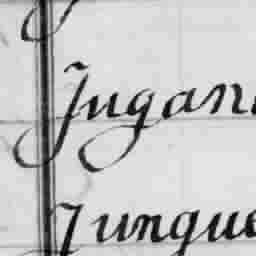 Jugan
Jungue